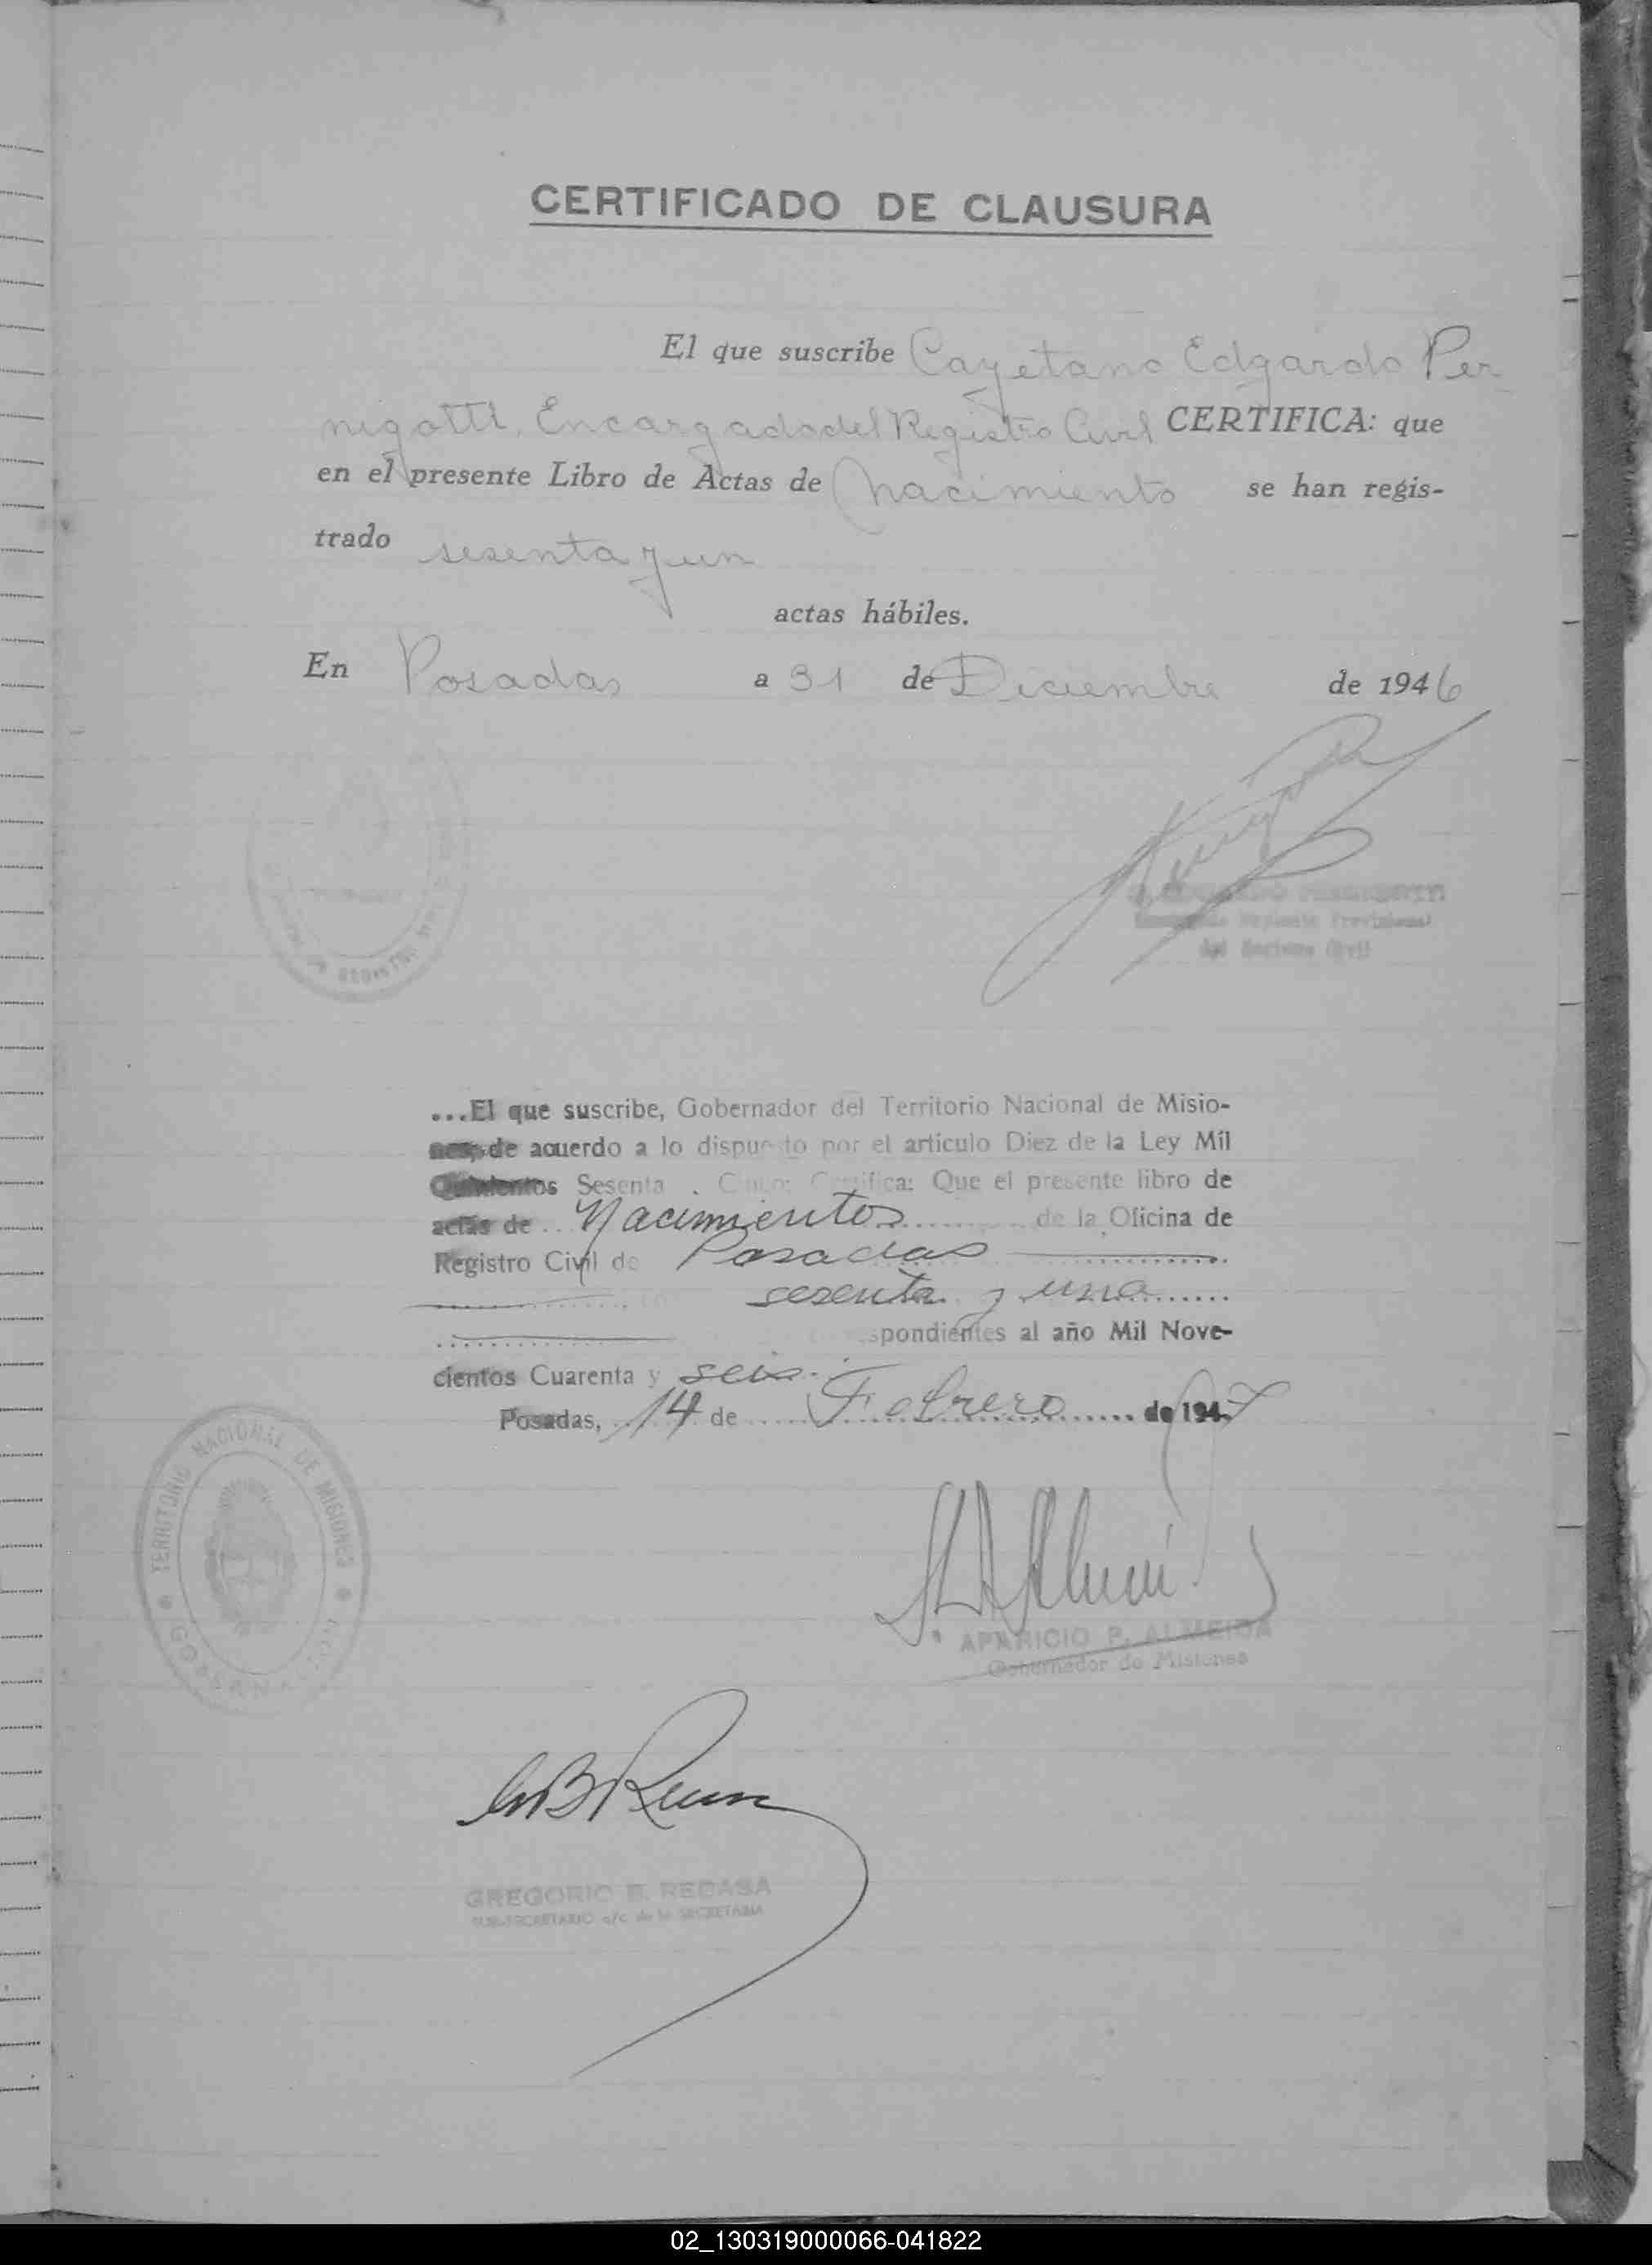 CERTIFICADO DE CLAUSURA
El que suscribe Cayetano Edgardo Per
nigotti, Encargado del Registro Civil CERTIFICA: que
en el presente Libro de Actas de Nacimiento se han regis-
trado sesenta y un
actas hábiles.
En Posadas a 31 de Diciembre de 1946
del Registro Civil
...El que suscribe, Gobernador del Territorio Nacional de Misio-
nes, de acuerdo a lo dispuesto por el artículo Diez de la Ley Mil
Quinientos Sesenta y Cinco; Certifica: Que el presente libro de
actas de Nacimientos de la Oficina de
Registro Civil de Posadas
sesenta y una
spondientes al año Mil Nove-
cientos Cuarenta y seis.
Posadas, 14 de Febrero de 1947
TERRITORIO NACIONAL DE MISIONES
APARICIO P. ALMEIDA
Gobernador de Misiones
GREGORIO B. REBASA
SUB-SECRETARIO a/c de la SECRETARIA
02_130319000066-041822